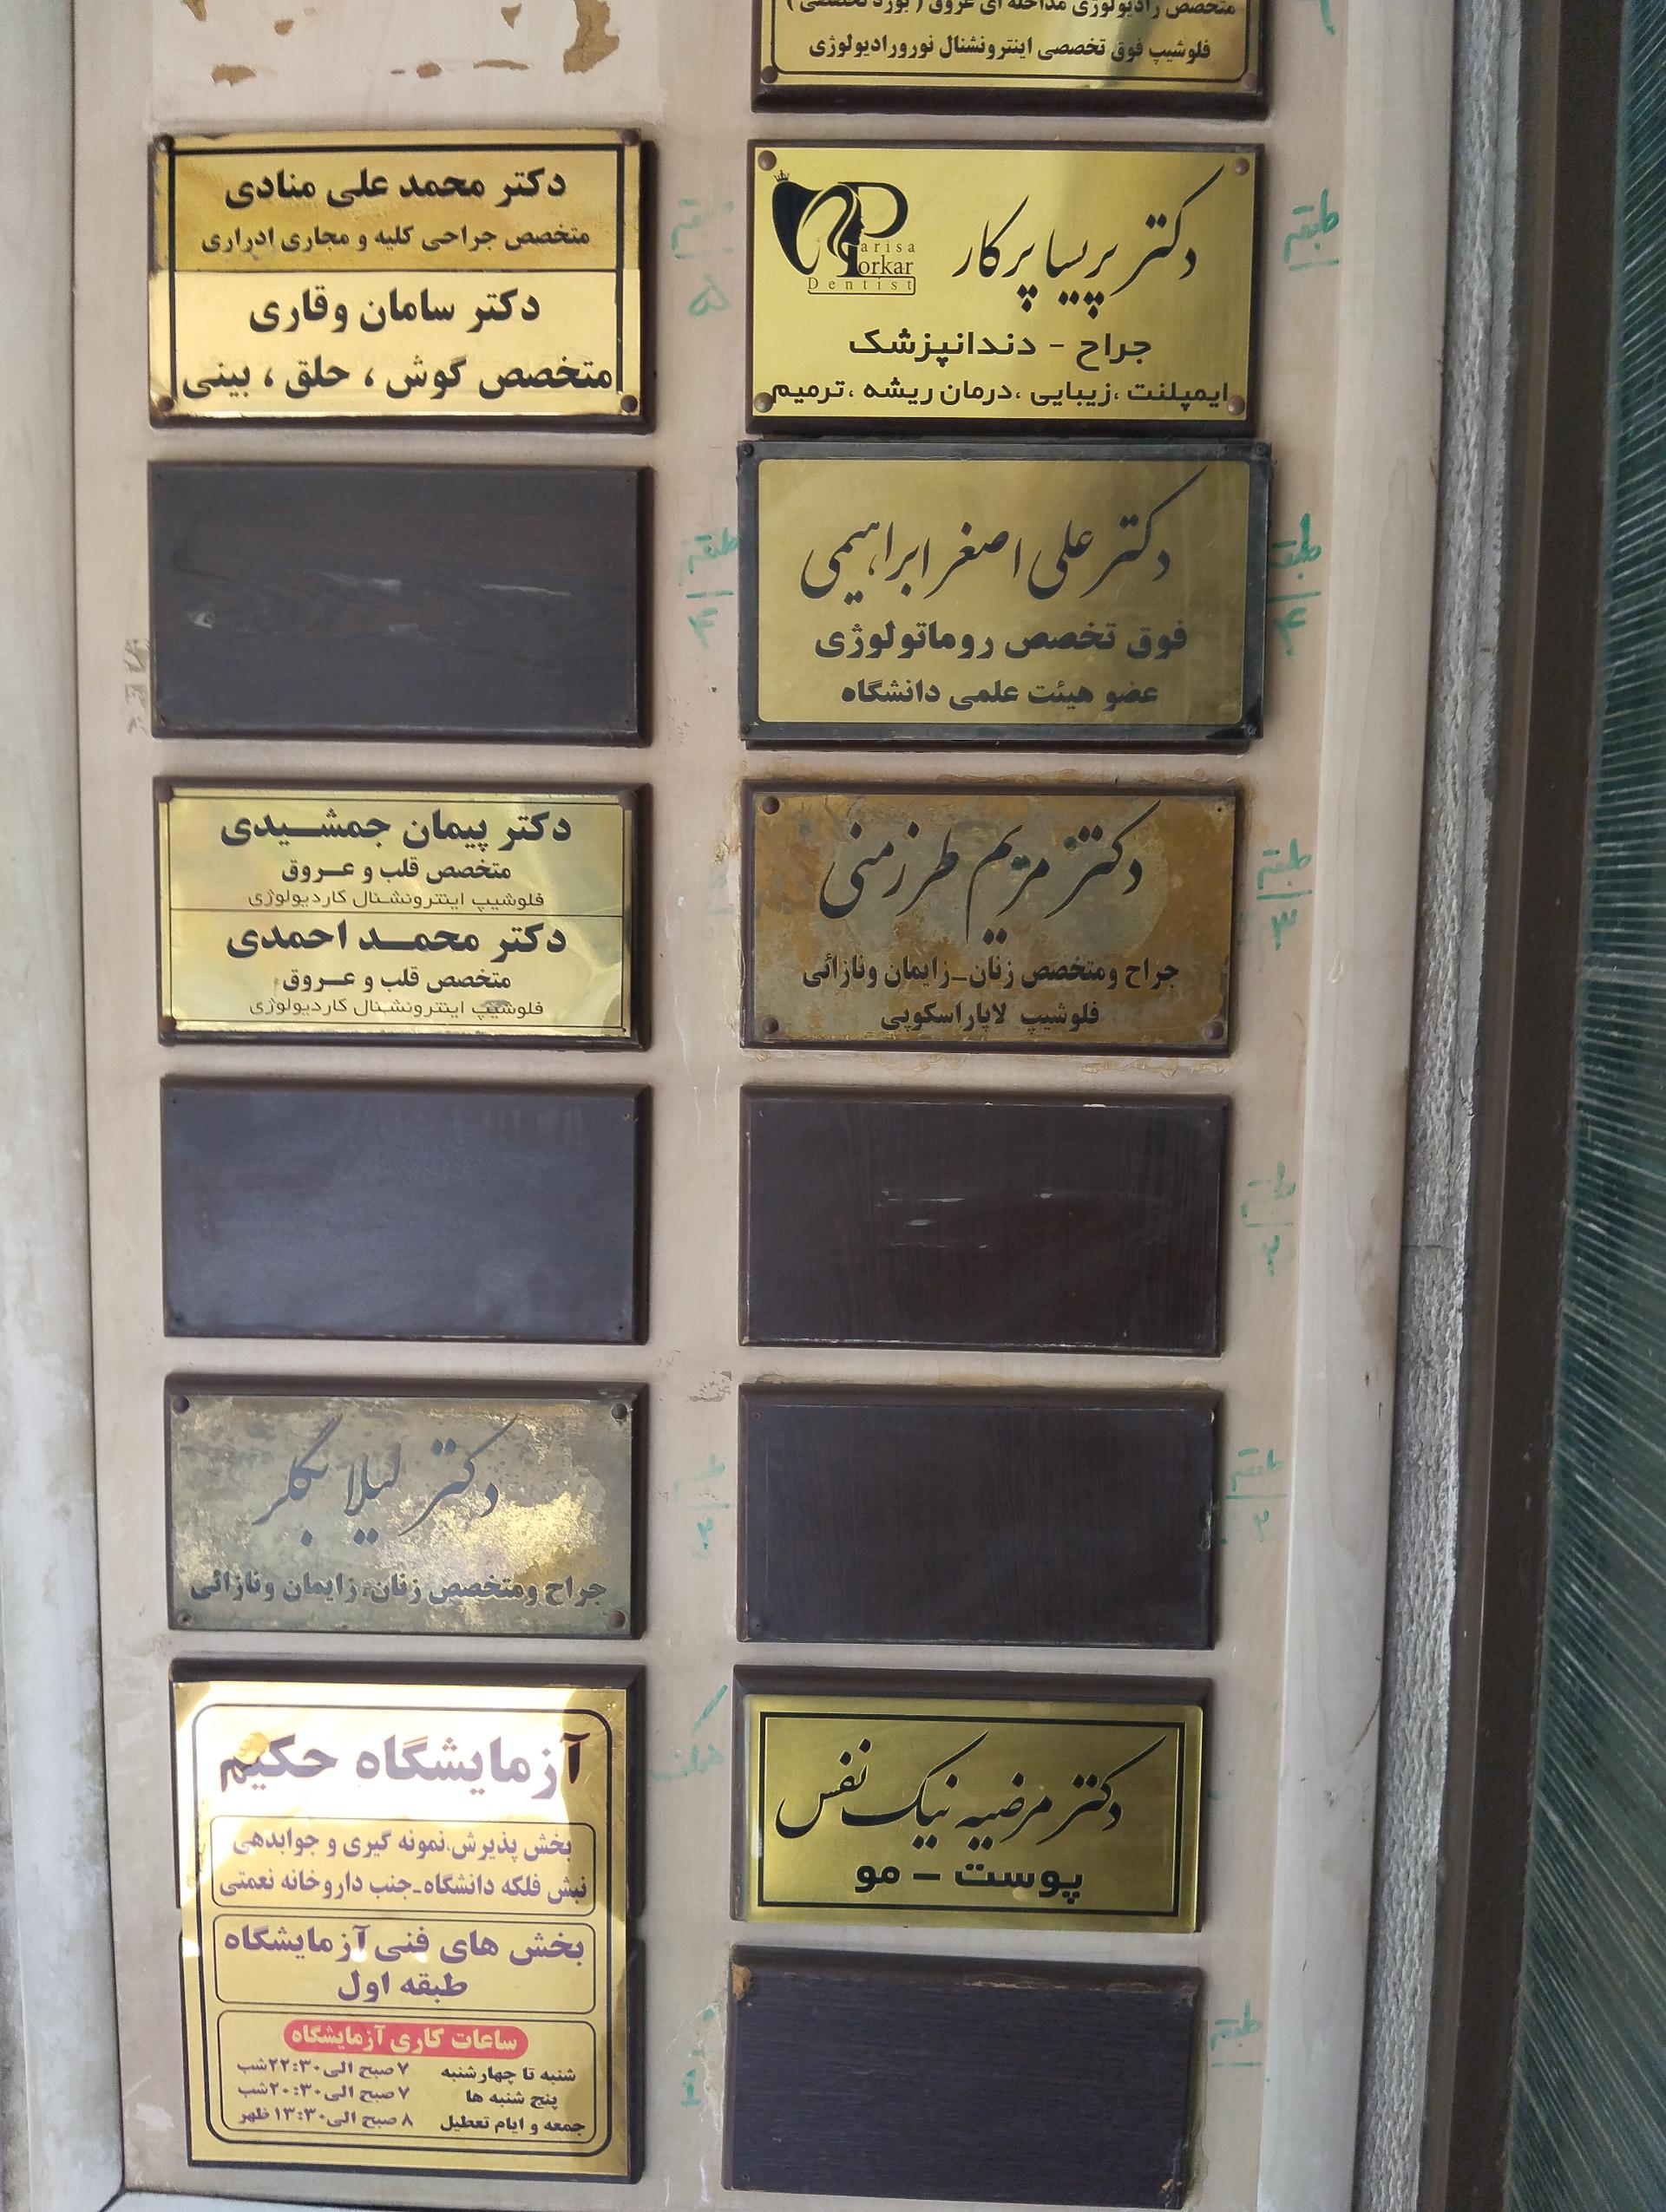 متخصص رادیولوژی مداخله ای عروق ( بورد تخصصی )
فلوشیپ فوق تخصصی اینترونشنال نورورادیولوژی
دکتر پریسا پرکار
Parisa
Porkar
Dentist
جراح - دندانپزشک
ایمپلنت ،زیبایی ،درمان ریشه ،ترمیم
طبقه
دکتر محمد علی منادی
متخصص جراحی کلیه و مجاری ادراری
دکتر سامان وقاری
متخصص گوش ، حلق ، بینی
طبقه ۵
دکتر علی اصغر ابراهیمی
فوق تخصص روماتولوژی
عضو هیئت علمی دانشگاه
طبقه ۴
طبقه ۴
دکتر مریم طرزمنی
جراح ومتخصص زنان_زایمان ونازائی
فلوشیپ لاپاراسکوپی
طبقه ۳
دکتر پیمان جمشیدی
متخصص قلب و عروق
فلوشیپ اینترونشنال کاردیولوژی
دکتر محمد احمدی
متخصص قلب و عروق
فلوشیپ اینترونشنال کاردیولوژی
دکتر لیلا بگلر
جراح ومتخصص زنان،زایمان ونازائی
طبقه ۲
طبقه ۲
دکتر مرضیه نیک نفس
پوست - مو
آزمایشگاه حکیم
بخش پذیرش،نمونه گیری و جوابدهی
نبش فلکه دانشگاه-جنب داروخانه نعمتی
بخش های فنی آزمایشگاه
طبقه اول
ساعات کاری آزمایشگاه
شنبه تا چهارشنبه ۷ صبح الی ۲۲:۳۰ شب
پنج شنبه ها ۷ صبح الی ۲۰:۳۰ شب
جمعه و ایام تعطیل ۸ صبح الی ۱۳:۳۰ ظهر
طبقه